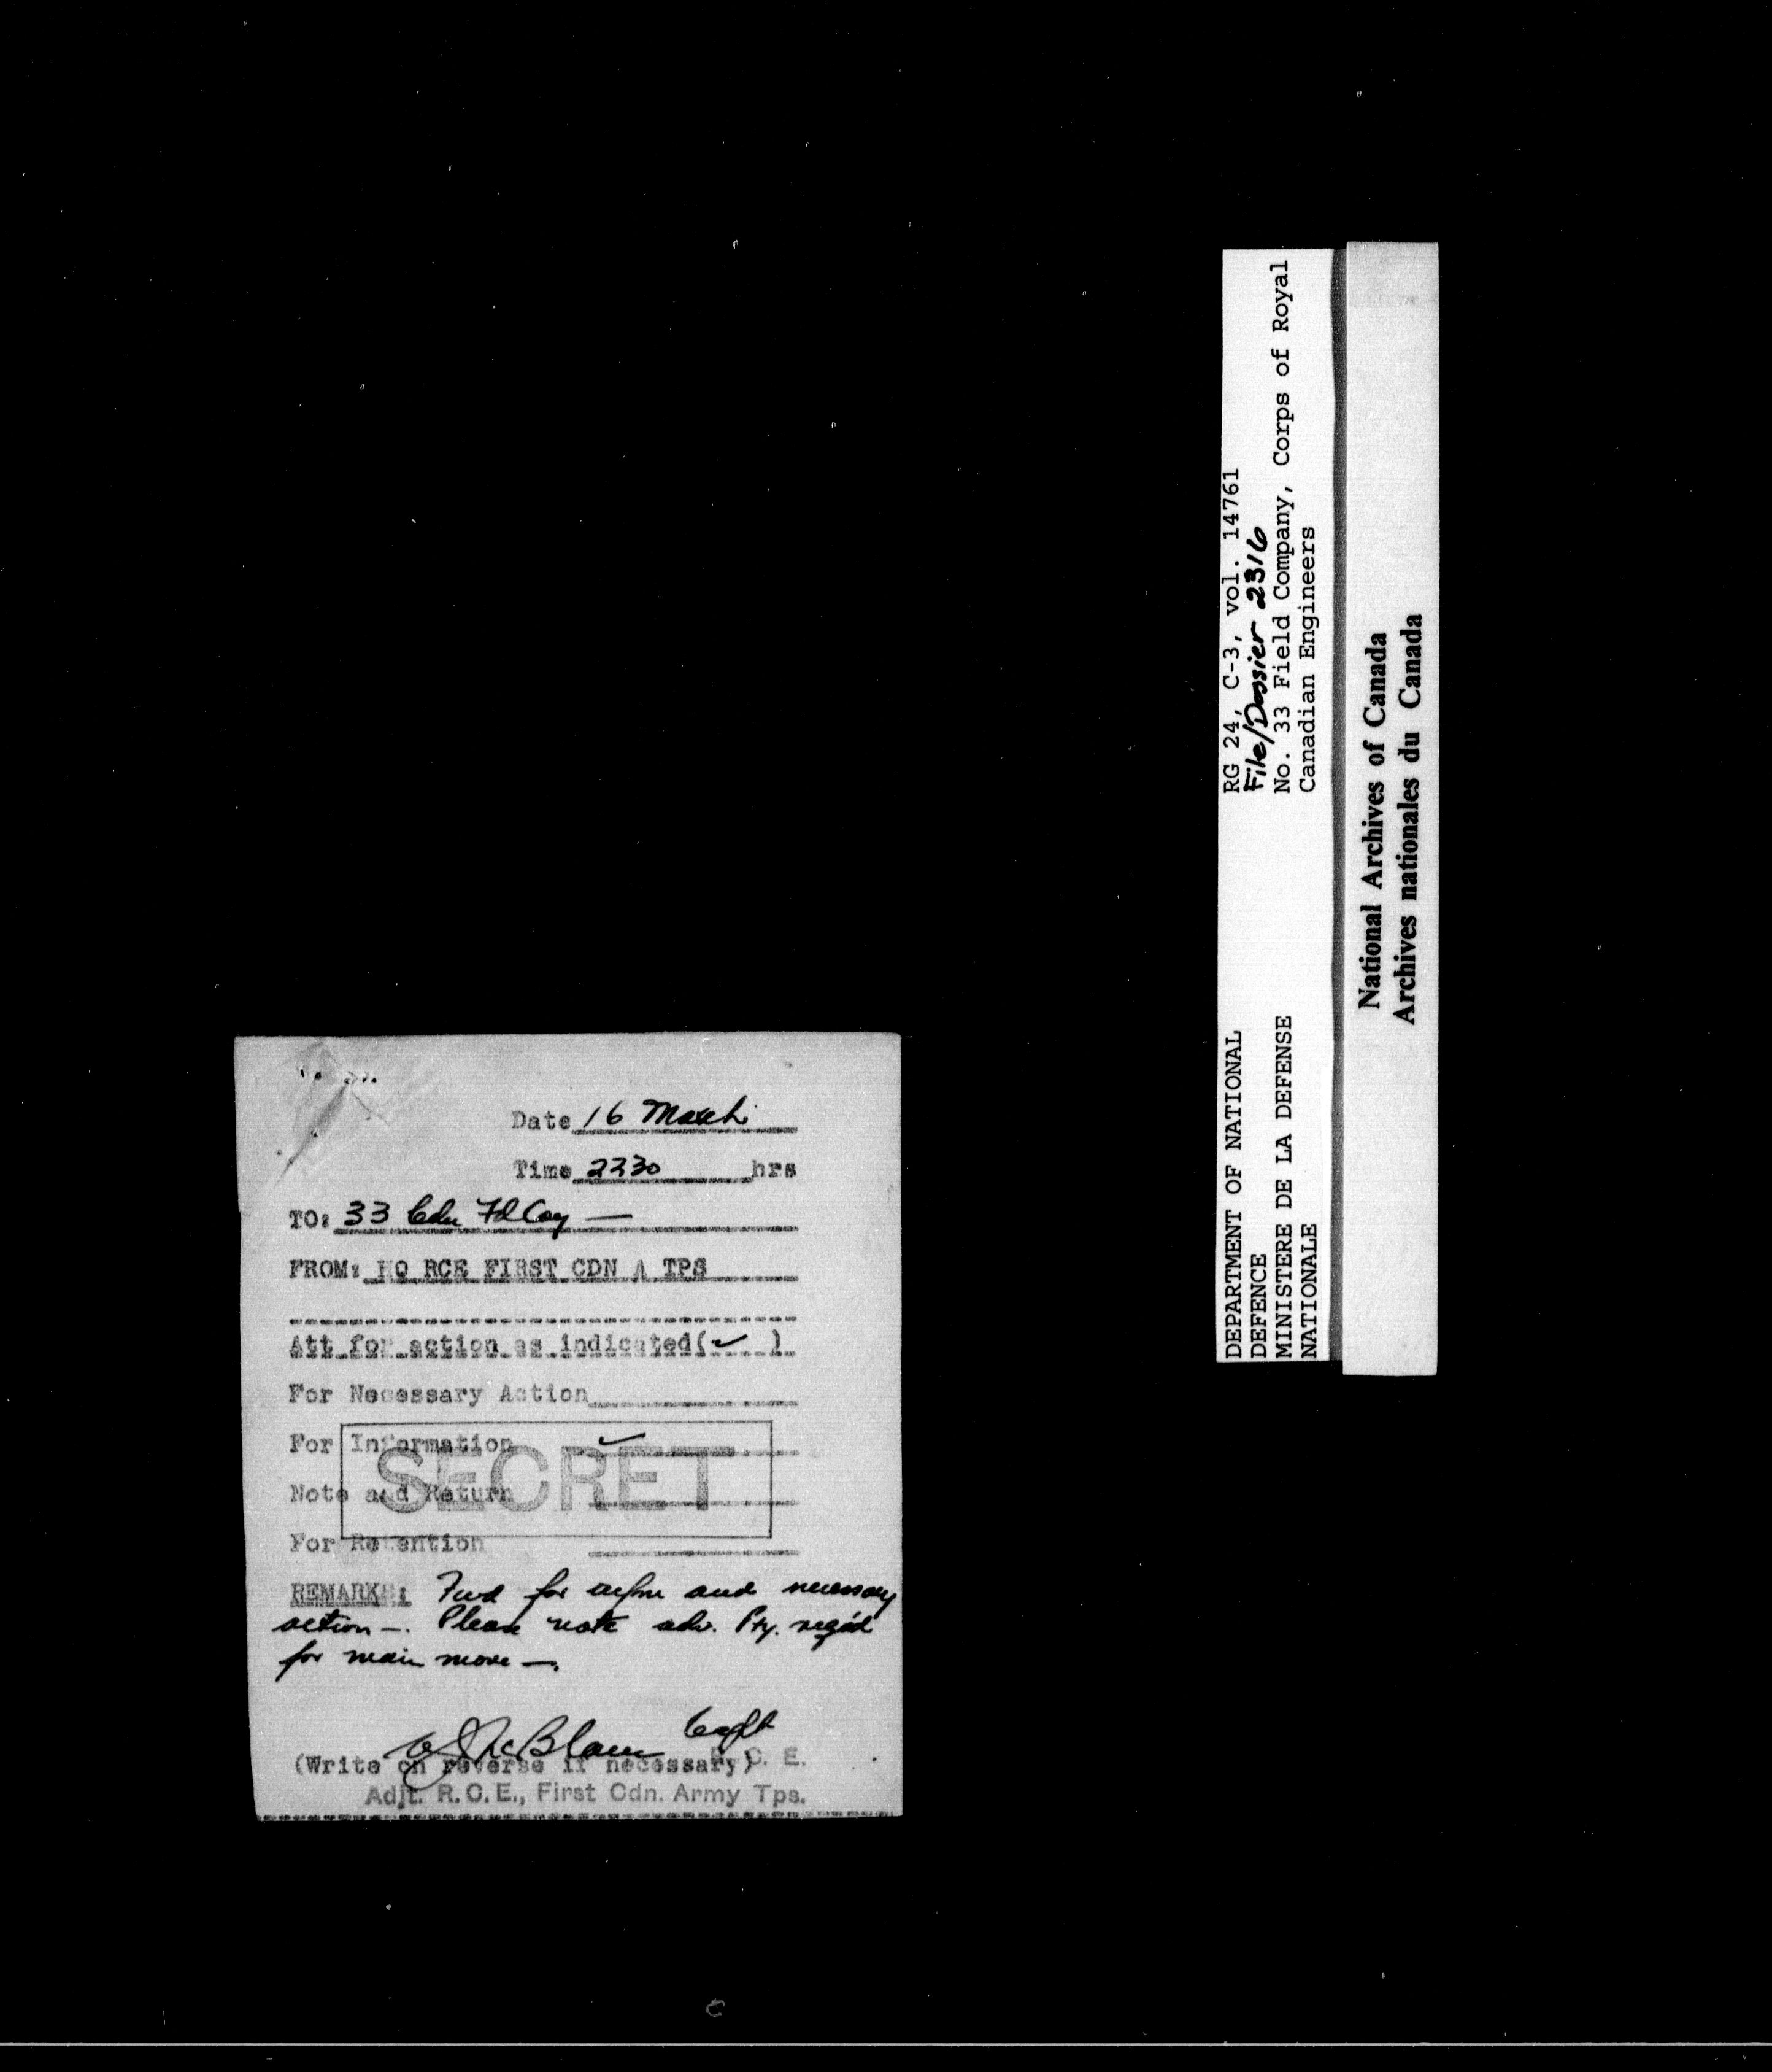 Date 16 March
Time 2230 hrs
TO: 33 Cdn Fd Coy —
FROM: HQ RCE FIRST CDN A TPS
Att for action as indicated(✓)
For Necessary Action
For Information ✓
SECRET
Note and Return
For Retention
REMARKS: Fwd for infm and necessary
action —. Please note adv. Pty. req'd
for main move —.
Capt
(Write on reverse if necessary) R. C. E.
Adjt. R. C. E., First Cdn. Army Tps.
RG 24, C-3, vol. 14761
File/Dossier 2316
No. 33 Field Company, Corps of Royal
Canadian Engineers
DEPARTMENT OF NATIONAL
DEFENCE
MINISTERE DE LA DEFENSE
NATIONALE
National Archives of Canada
Archives nationales du Canada